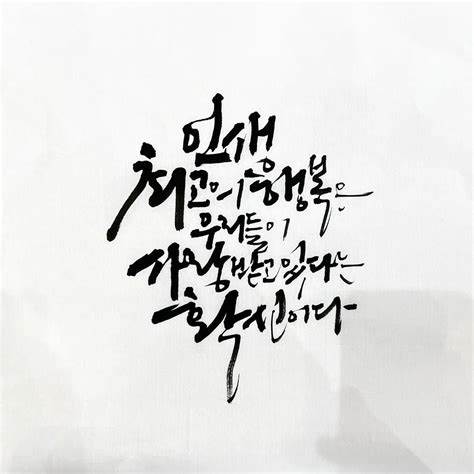 인생
최고의 행복은
우리들이
사랑받고 있다는
확신이다